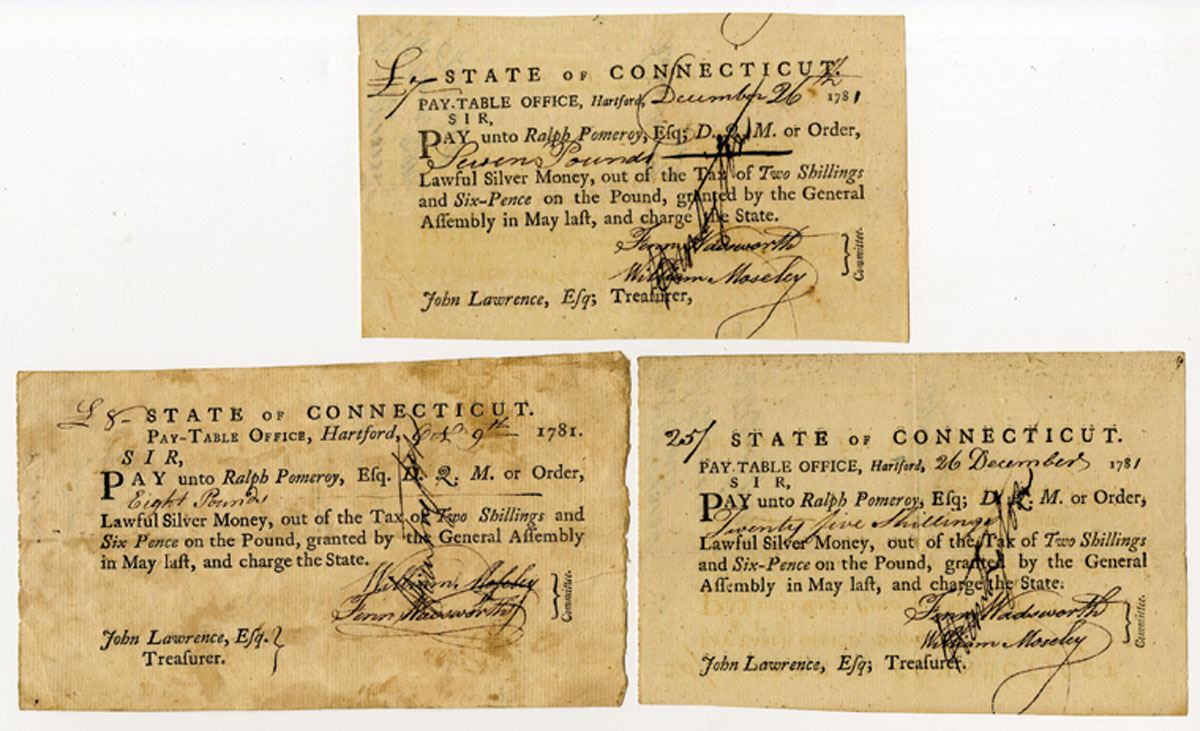 £7 STATE OF CONNECTICUT.
PAY-TABLE OFFICE, Hartford, December 26th 1781
SIR,
PAY unto Ralph Pomeroy, Eſq; D. Q. M. or Order,
Seven Pounds
Lawful Silver Money, out of the Tax of Two Shillings
and Six-Pence on the Pound, granted by the General
Aſſembly in May laſt, and charge the State.
Fenn Wadsworth
William Moseley
Committee.
John Lawrence, Eſq; Treaſurer,
£8- STATE OF CONNECTICUT.
PAY-TABLE OFFICE, Hartford, Octr 9th 1781.
SIR,
PAY unto Ralph Pomeroy, Eſq. D. Q. M. or Order,
Eight Pounds
Lawful Silver Money, out of the Tax of Two Shillings and
Six Pence on the Pound, granted by the General Aſſembly
in May laſt, and charge the State.
William Moseley
Fenn Wadsworth
Committee.
John Lawrence, Eſq.
Treaſurer.
25/ STATE OF CONNECTICUT.
PAY-TABLE OFFICE, Hartford, 26 December 1781
SIR,
PAY unto Ralph Pomeroy, Eſq; D. Q. M. or Order,
Twenty five Shillings
Lawful Silver Money, out of the Tax of Two Shillings
and Six-Pence on the Pound, granted by the General
Aſſembly in May laſt, and charge the State.
Fenn Wadsworth
William Moseley
Committee.
John Lawrence, Eſq; Treaſurer.